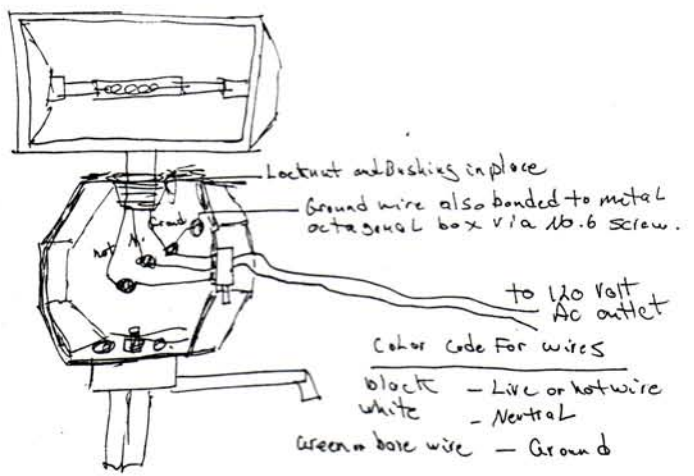 Locknut and Bushing in place
Ground wire also bonded to metal
octagonal box via No. 6 screw.
Ground
N.
hot
to 120 Volt
AC outlet
Color Code For wires
black - Live or hot wire
white - Neutral
Green or bare wire - Ground